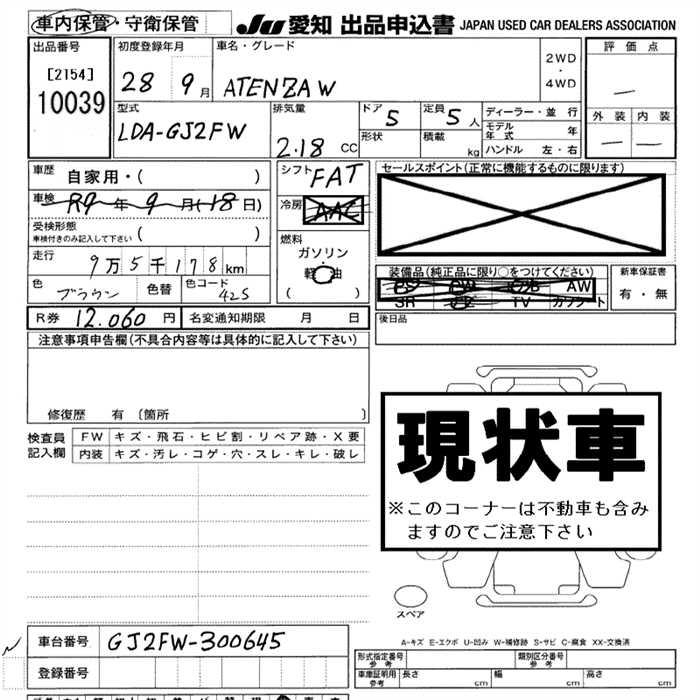 車内保管・守衛保管
JU 愛知 出品申込書 JAPAN USED CAR DEALERS ASSOCIATION
出品番号
[2154]
10039
初度登録年月
28 9月
車名・グレード
ATENZA W
2WD
・
4WD
評価点
—
外装 内装
— —
型式
LDA-GJ2FW
排気量
2.18 CC
ドア 5
形状
定員 5 人
積載 kg
ディーラー・並行
モデル年式 年
ハンドル 左・右
車歴 自家用・( )
車検 R9年 9月(18日)
受検形態
車検付きのみ記入して下さい ( )
走行 9万5千178km
色 ブラウン 色替 色コード 42S
シフト FAT
冷房 AAC
燃料
ガソリン
・
軽油
( )
セールスポイント(正常に機能するものに限ります)
装備品(純正品に限り○をつけてください)
PS PW AW
SR TV カワシート
新車保証書
有・無
R券 12.060 円 名変通知期限 月 日
後日品
注意事項申告欄(不具合内容等は具体的に記入して下さい)
修復歴 有 〔箇所 〕
検査員
記入欄
FW キズ・飛石・ヒビ割・リペア跡・X要
内装 キズ・汚レ・コゲ・穴・スレ・キレ・破レ
現状車
※このコーナーは不動車も含み
ますのでご注意下さい
スペア
A-キズ E-エクボ U-凹み W-補修跡 S-サビ C-腐食 XX-交換済
車台番号 GJ2FW-300645
登録番号
形式指定番号 参考
類別区分番号 参考
車庫証明用 参考 長さ cm 幅 cm 高さ cm